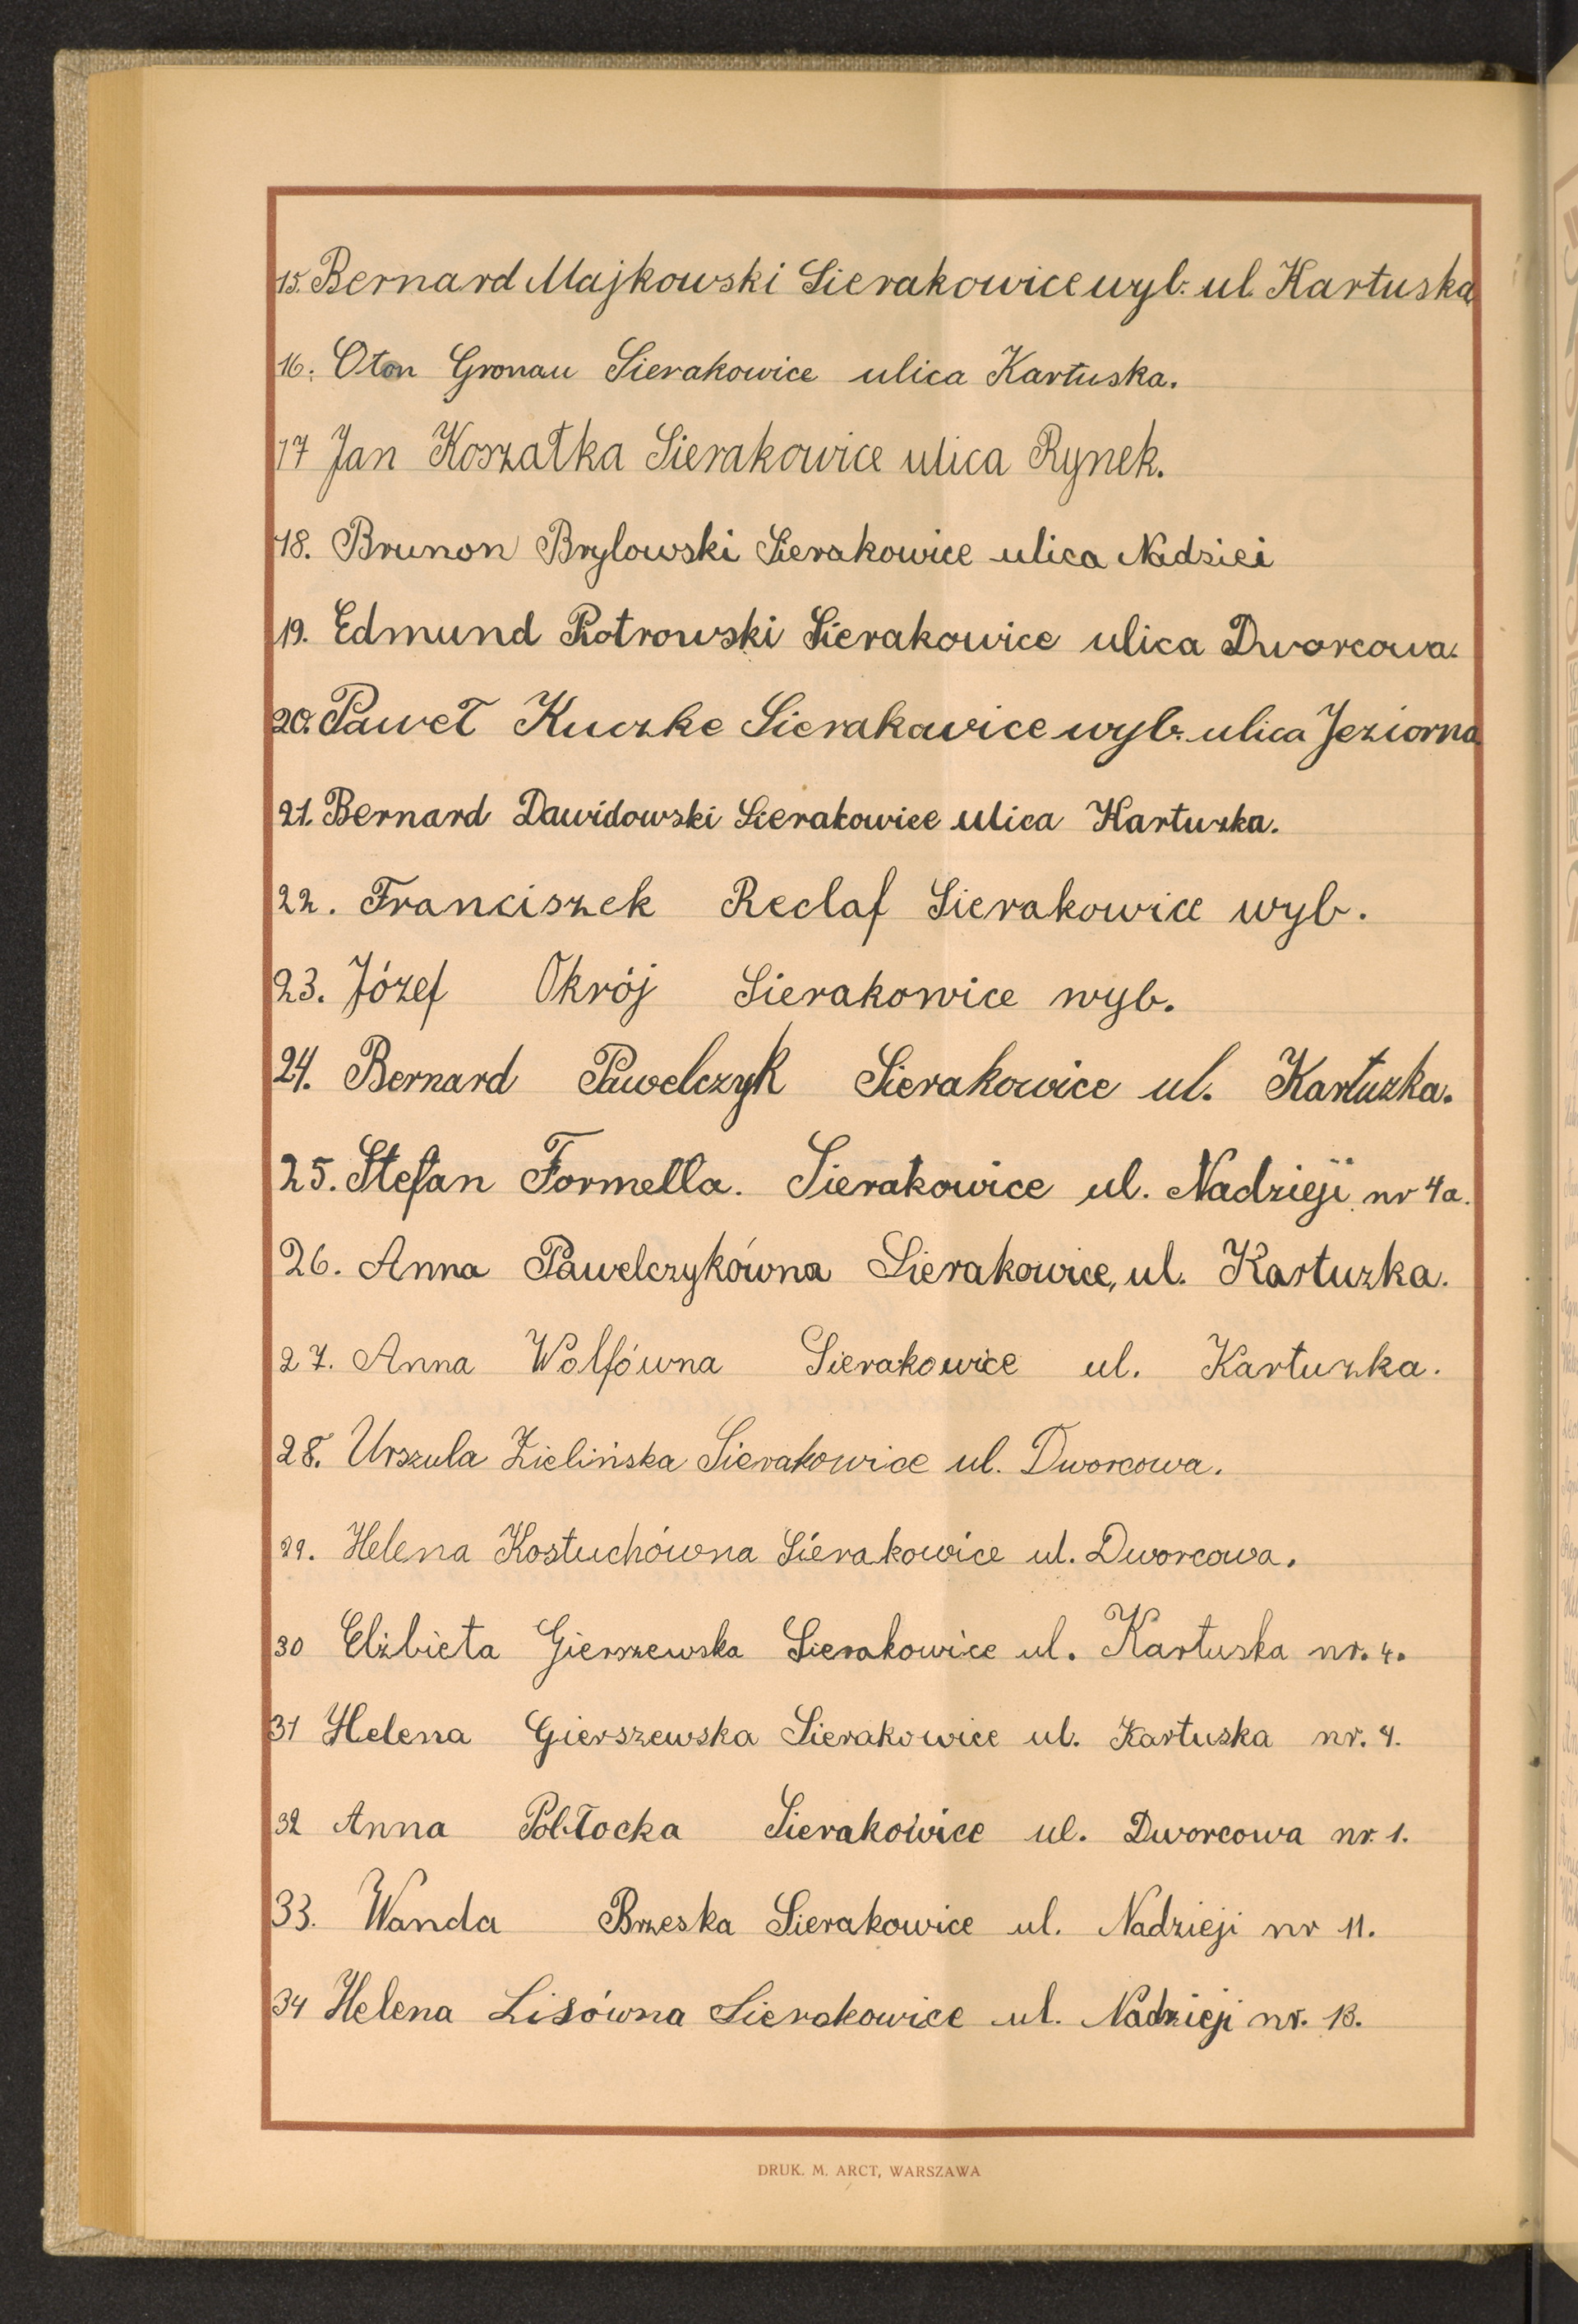 15. Bernard Majkowski Sierakowice wyb. ul. Kartuska
16. Oton Gronau Sierakowice ulica Kartuska.
17 Jan Koszałka Sierakowice ulica Rynek.
18. Brunon Brylowski Sierakowice ulica Nadziei
19. Edmund Piotrowski Sierakowice ulica Dworcowa.
20. Paweł Kuczke Sierakowice wyb. ulica Jeziorna
21. Bernard Dawidowski Sierakowice ulica Kartuzka.
22. Franciszek Reclaf Sierakowice wyb.
23. Józef Okrój Sierakowice wyb.
24. Bernard Pawelczyk Sierakowice ul. Kartuzka.
25. Stefan Formella. Sierakowice ul. Nadzieji nr 4a.
26. Anna Pawelczykówna Sierakowice, ul. Kartuzka.
27. Anna Wolfówna Sierakowice ul. Kartuzka.
28. Urszula Zielińska Sierakowice ul. Dworcowa.
29. Helena Kostuchówna Sierakowice ul. Dworcowa.
30 Elżbieta Gierszewska Sierakowice ul. Kartuska nr. 4.
31 Helena Gierszewska Sierakowice ul. Kartuska nr. 4.
32 Anna Pobłocka Sierakowice ul. Dworcowa nr. 1.
33. Wanda Brzeska Sierakowice ul. Nadzieji nr 11.
34 Helena Lisówna Sierakowice ul. Nadzieji nr. 13.
DRUK. M. ARCT, WARSZAWA